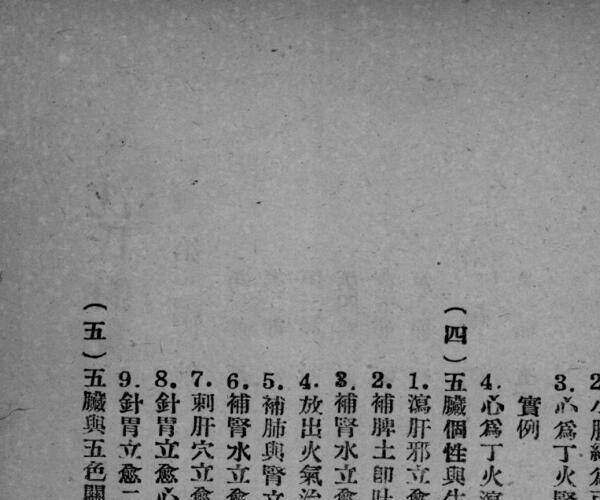 2. 小腸經爲
3. 心爲丁火腎
實例
4. 心爲丁火瀉
（四）五臟個性與生
1. 瀉肝邪立愈
2. 補脾土卽吐
3. 補腎水立愈
4. 放出火氣治
5. 補肺與腎立
6. 補腎水立愈
7. 刺肝穴立愈
8. 針胃立愈心
9. 針胃立愈二
（五）五臟與五色關